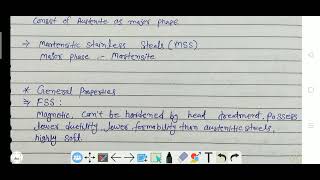 Consist of Austenite as major phase
→ Martensitic Stainless Steels (MSS)
Major phase :- Martensite
* General Properties
⇒ FSS :
Magnetic, Can't be hardened by head treatment, Posses
lower ductility, lower formability than austenitic steels,
highly soft.